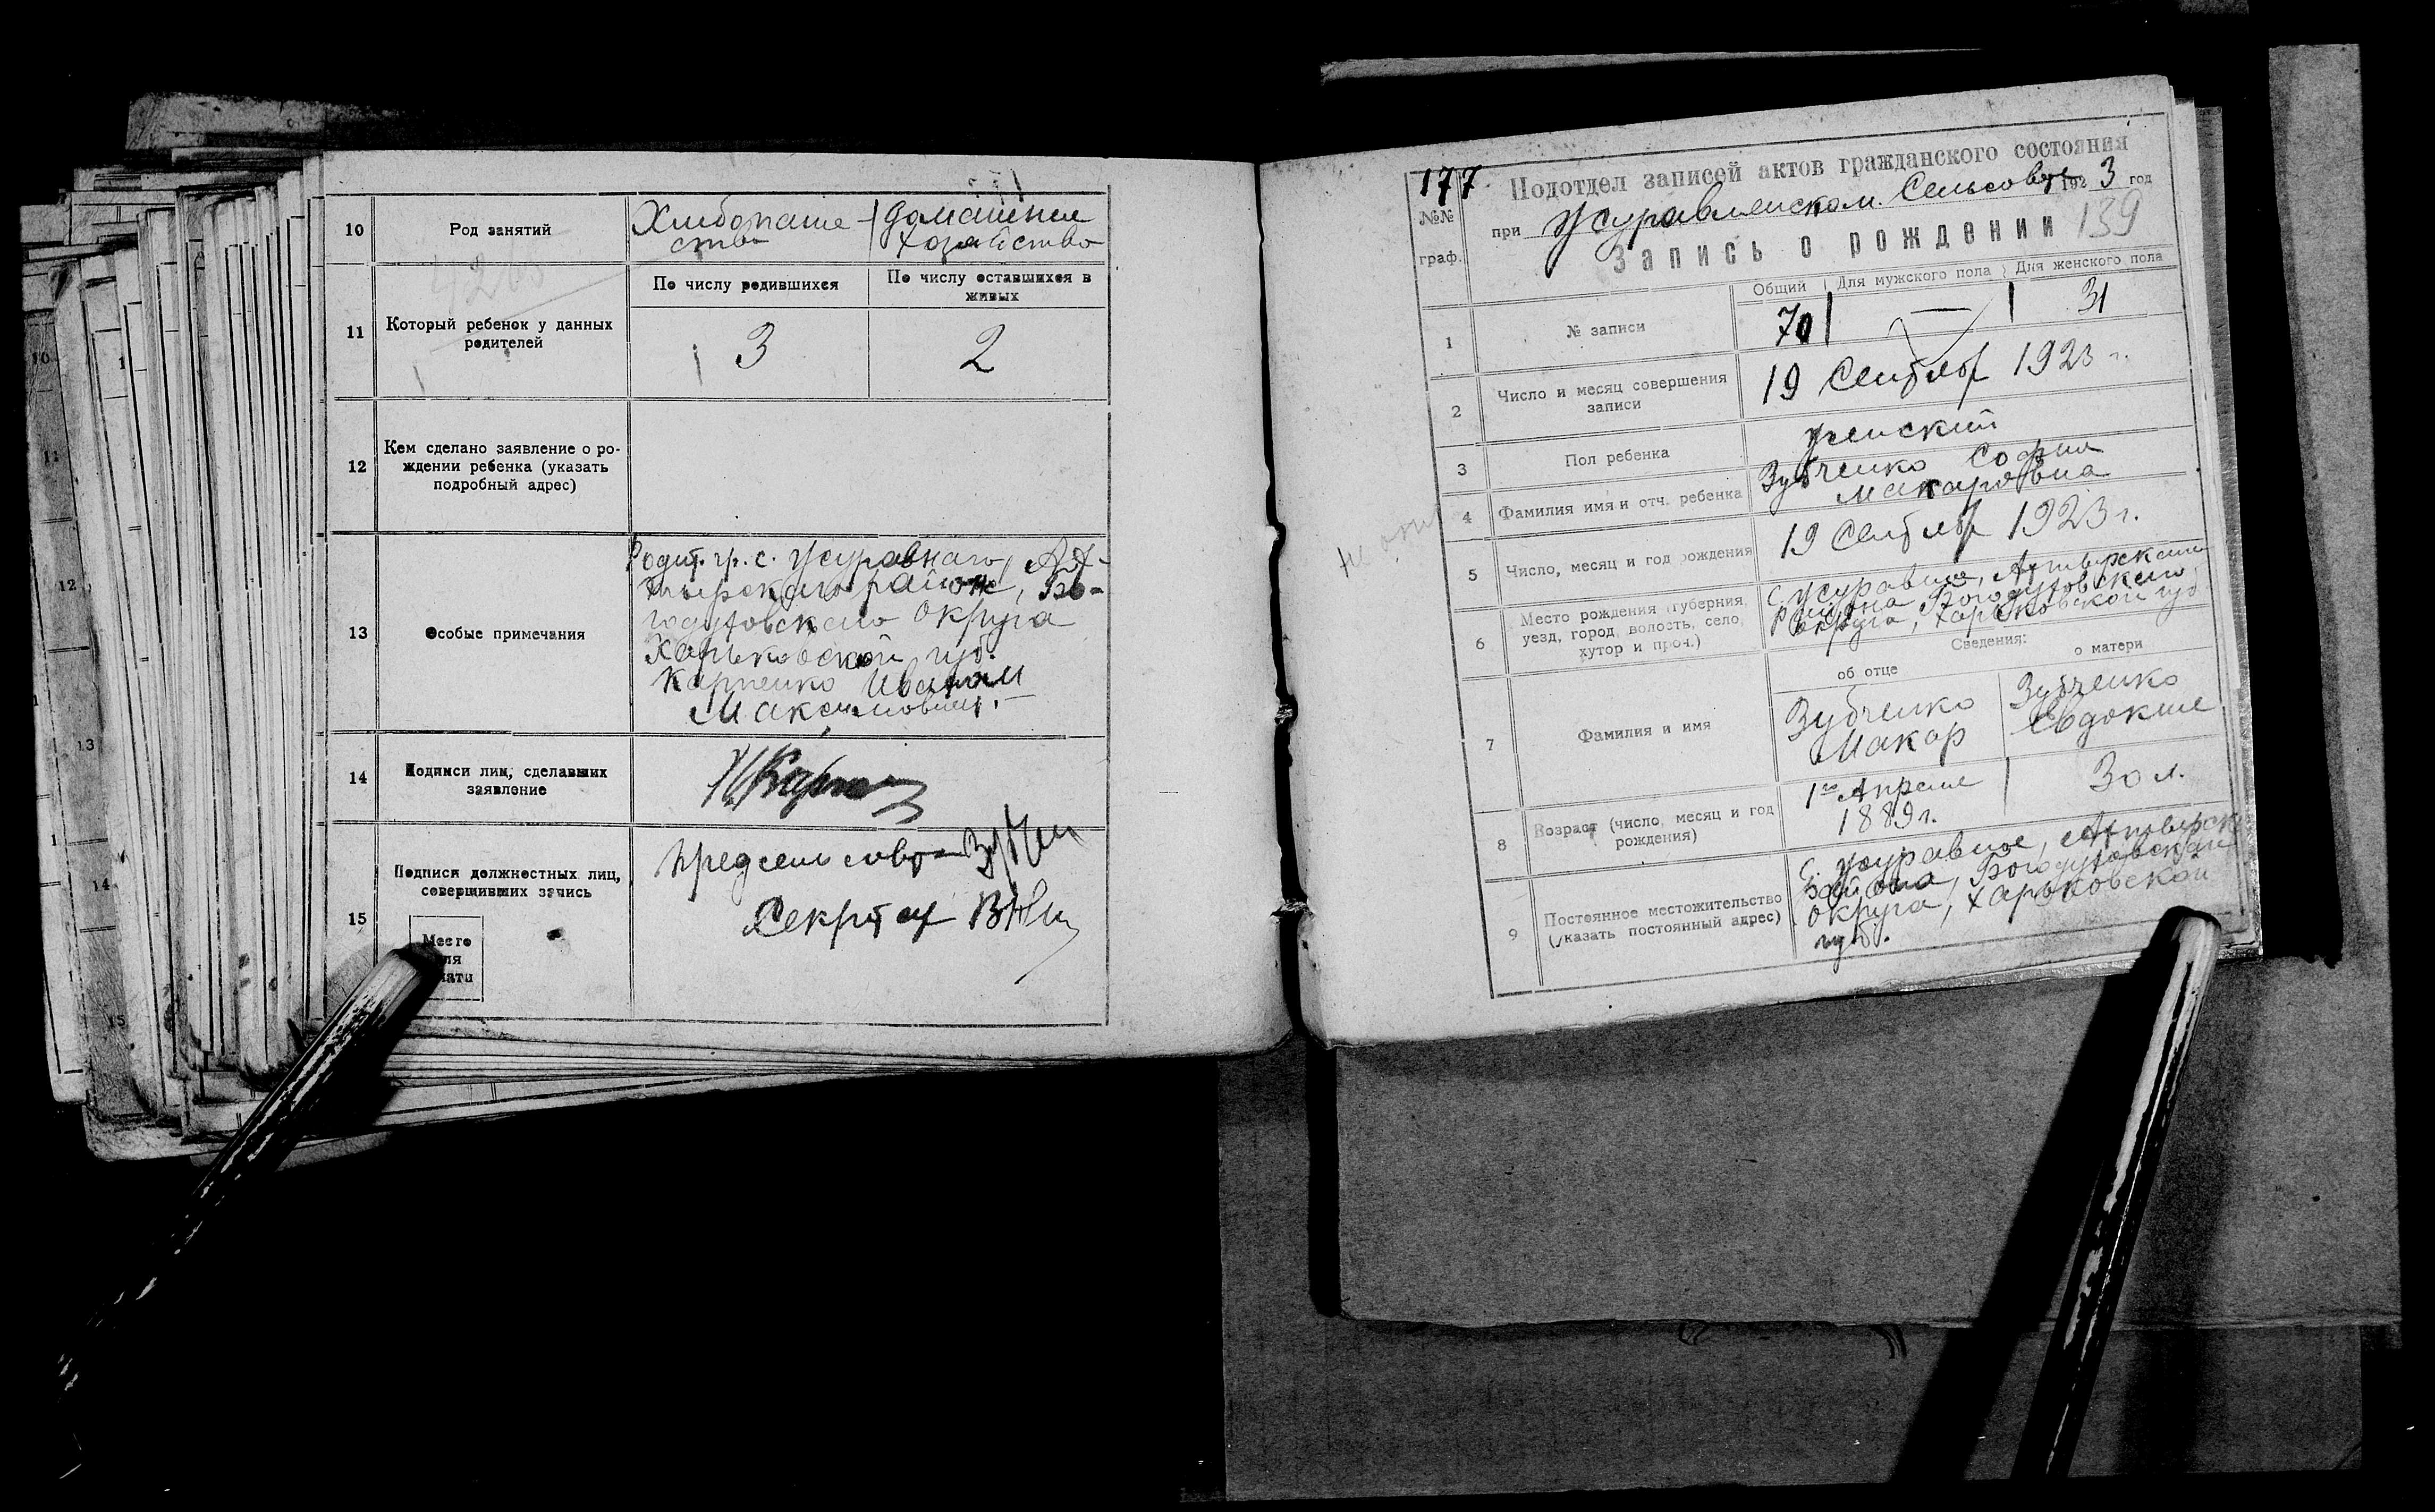 10 Род занятий Хлибопаше- домашнее
ство хозяйство
11 Который ребенок у данных
родителей
По числу родившихся По числу оставшихся в
живых
3 2
12 Кем сделано заявление о ро-
ждении ребенка (указать
подробный адрес)
13 Особые примечания
Родит. гр. с. Журавного, Ах-
тырского района, Бо-
годуховского округа
Харьковской губ.
Карпенко Иваном
Максимович.
14 Подписи лиц, сделавших
заявление
15 Подписи должностных лиц,
совершивших запись
Место
для
печати
Предсельсовета
Секретар
177
Подотдел записей актов гражданского состояния
при Журавленском Сельсовете 192 3 год
№№
граф.
Запись о рождении 139
Общий Для мужского пола Для женского пола
1 № записи 70 — 31
2 Число и месяц совершения
записи
19 Сентября 1923 г.
3 Пол ребенка женский
4 Фамилия имя и отч. ребенка Зубченко София
Макаровна
5 Число, месяц и год рождения 19 Сентября 1923 г.
6 Место рождения (губерния,
уезд, город, волость, село,
хутор и проч.)
с. Журавное, Ахтырского
района Богодуховского
округа, Харьковской губ
Сведения:
об отце о матери
7 Фамилия и имя
Зубченко Зубченко
Макар Евдокия
8 Возраст (число, месяц и год
рождения)
1го Апреля 30 л.
1889 г.
9 Постоянное местожительство
(указать постоянный адрес)
с. Журавное, Ахтырск
района, Богодуховский
округа, Харьковской
губ.